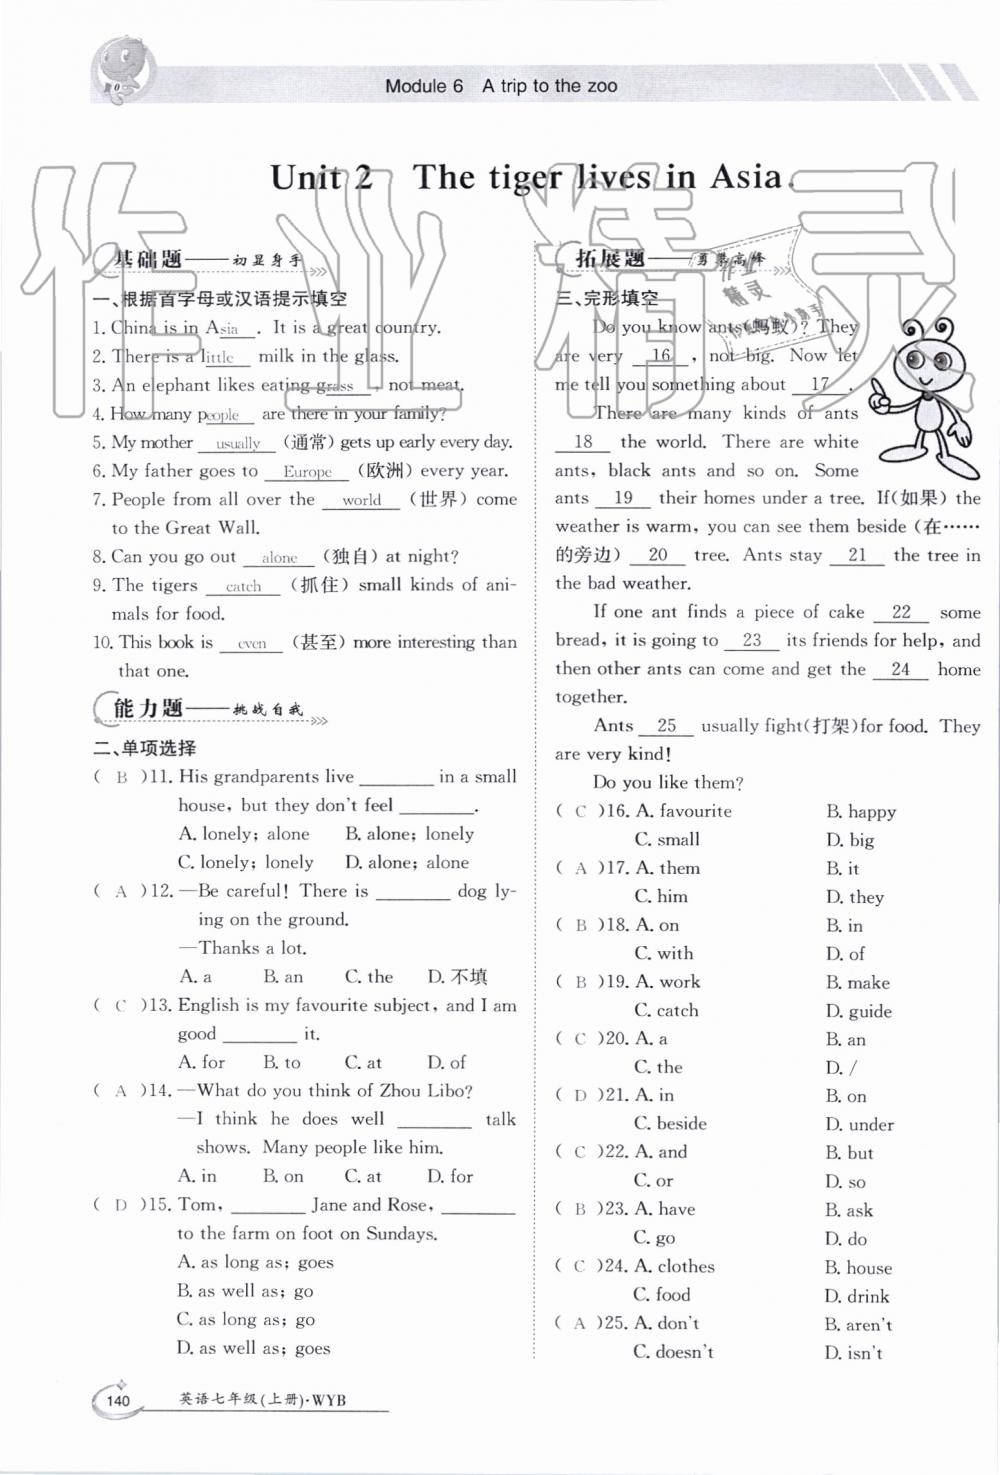 Module 6 A trip to the zoo
Unit 2 The tiger lives in Asia.
基础题——初显身手
一、根据首字母或汉语提示填空
1. China is in Asia. It is a great country.
2. There is a little milk in the glass.
3. An elephant likes eating grass, not meat.
4. How many people are there in your family?
5. My mother usually (通常) gets up early every day.
6. My father goes to Europe (欧洲) every year.
7. People from all over the world (世界) come
to the Great Wall.
8. Can you go out alone (独自) at night?
9. The tigers catch (抓住) small kinds of ani-
mals for food.
10. This book is even (甚至) more interesting than
that one.
能力题——挑战自我
二、单项选择
( B )11. His grandparents live ________ in a small
house, but they don't feel ________.
A. lonely; alone B. alone; lonely
C. lonely; lonely D. alone; alone
( A )12. —Be careful! There is ________ dog ly-
ing on the ground.
—Thanks a lot.
A. a B. an C. the D. 不填
( C )13. English is my favourite subject, and I am
good ________ it.
A. for B. to C. at D. of
( A )14. —What do you think of Zhou Libo?
—I think he does well ________ talk
shows. Many people like him.
A. in B. on C. at D. for
( D )15. Tom, ________ Jane and Rose, ________
to the farm on foot on Sundays.
A. as long as; goes
B. as well as; go
C. as long as; go
D. as well as; goes
拓展题——勇攀高峰
三、完形填空
Do you know ants(蚂蚁)? They
are very 16, not big. Now let
me tell you something about 17.
There are many kinds of ants
18 the world. There are white
ants, black ants and so on. Some
ants 19 their homes under a tree. If(如果) the
weather is warm, you can see them beside (在……
的旁边) 20 tree. Ants stay 21 the tree in
the bad weather.
If one ant finds a piece of cake 22 some
bread, it is going to 23 its friends for help, and
then other ants can come and get the 24 home
together.
Ants 25 usually fight(打架)for food. They
are very kind!
Do you like them?
( C )16. A. favourite B. happy
C. small D. big
( A )17. A. them B. it
C. him D. they
( B )18. A. on B. in
C. with D. of
( B )19. A. work B. make
C. catch D. guide
( C )20. A. a B. an
C. the D. /
( D )21. A. in B. on
C. beside D. under
( C )22. A. and B. but
C. or D. so
( B )23. A. have B. ask
C. go D. do
( C )24. A. clothes B. house
C. food D. drink
( A )25. A. don't B. aren't
C. doesn't D. isn't
140 英语七年级(上册)·WYB
作业精灵